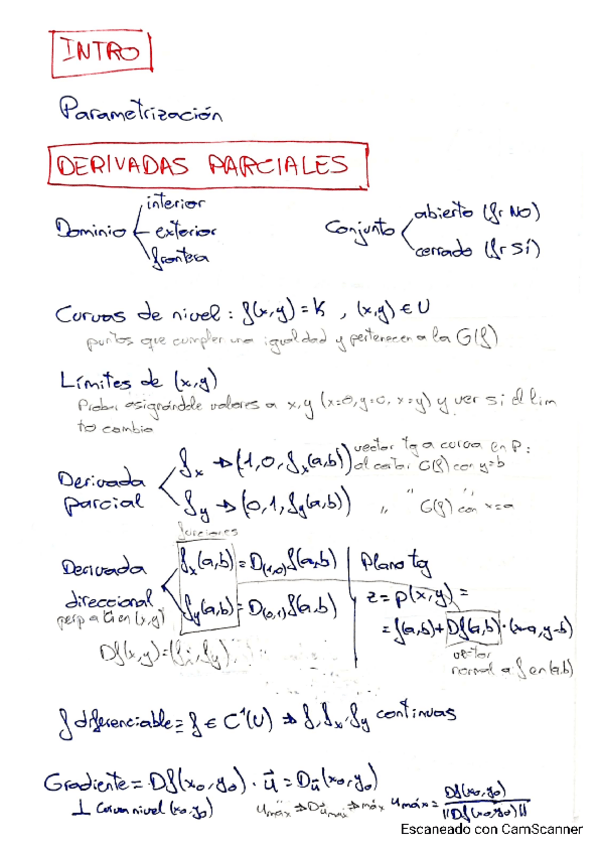 INTRO
Parametrización
DERIVADAS PARCIALES
Dominio interior
exterior
frontera
Conjunto abierto (fr NO)
cerrado (fr Sí)
Curvas de nivel : f(x,y) = K , (x,y) ∈ U
puntos que cumplen una igualdad y pertenecen a la G(f)
Límites de (x,y)
Probar asignándole valores a x,y (x=0, y=0, x=y) y ver si el lím
to cambia
Derivada parcial
fx → (1,0, fx(a,b)) vector tg a curva en P:
al cortar G(f) con y=b
fy → (0,1, fy(a,b)) " " G(f) con x=a
funciones
Derivada direccional
fx(a,b) = D(1,0)f(a,b)
fy(a,b) = D(0,1)f(a,b)
perp a C en (x,y)
Df(x,y) = (fx, fy)
Plano tg
z = p(x,y) =
= f(a,b) + Df(a,b) · (x-a, y-b)
vector
normal a f en (a,b)
f diferenciable = f ∈ C¹(U) ⇒ f, fx, fy continuas
Gradiente = Df(x₀,y₀) · u⃗ = Du⃗(x₀,y₀)
⊥ Curva nivel (x₀,y₀)
umáx ⇒ Du⃗máx ⇒ máx umáx = Df(x₀,y₀) / ||Df(x₀,y₀)||
Escaneado con CamScanner